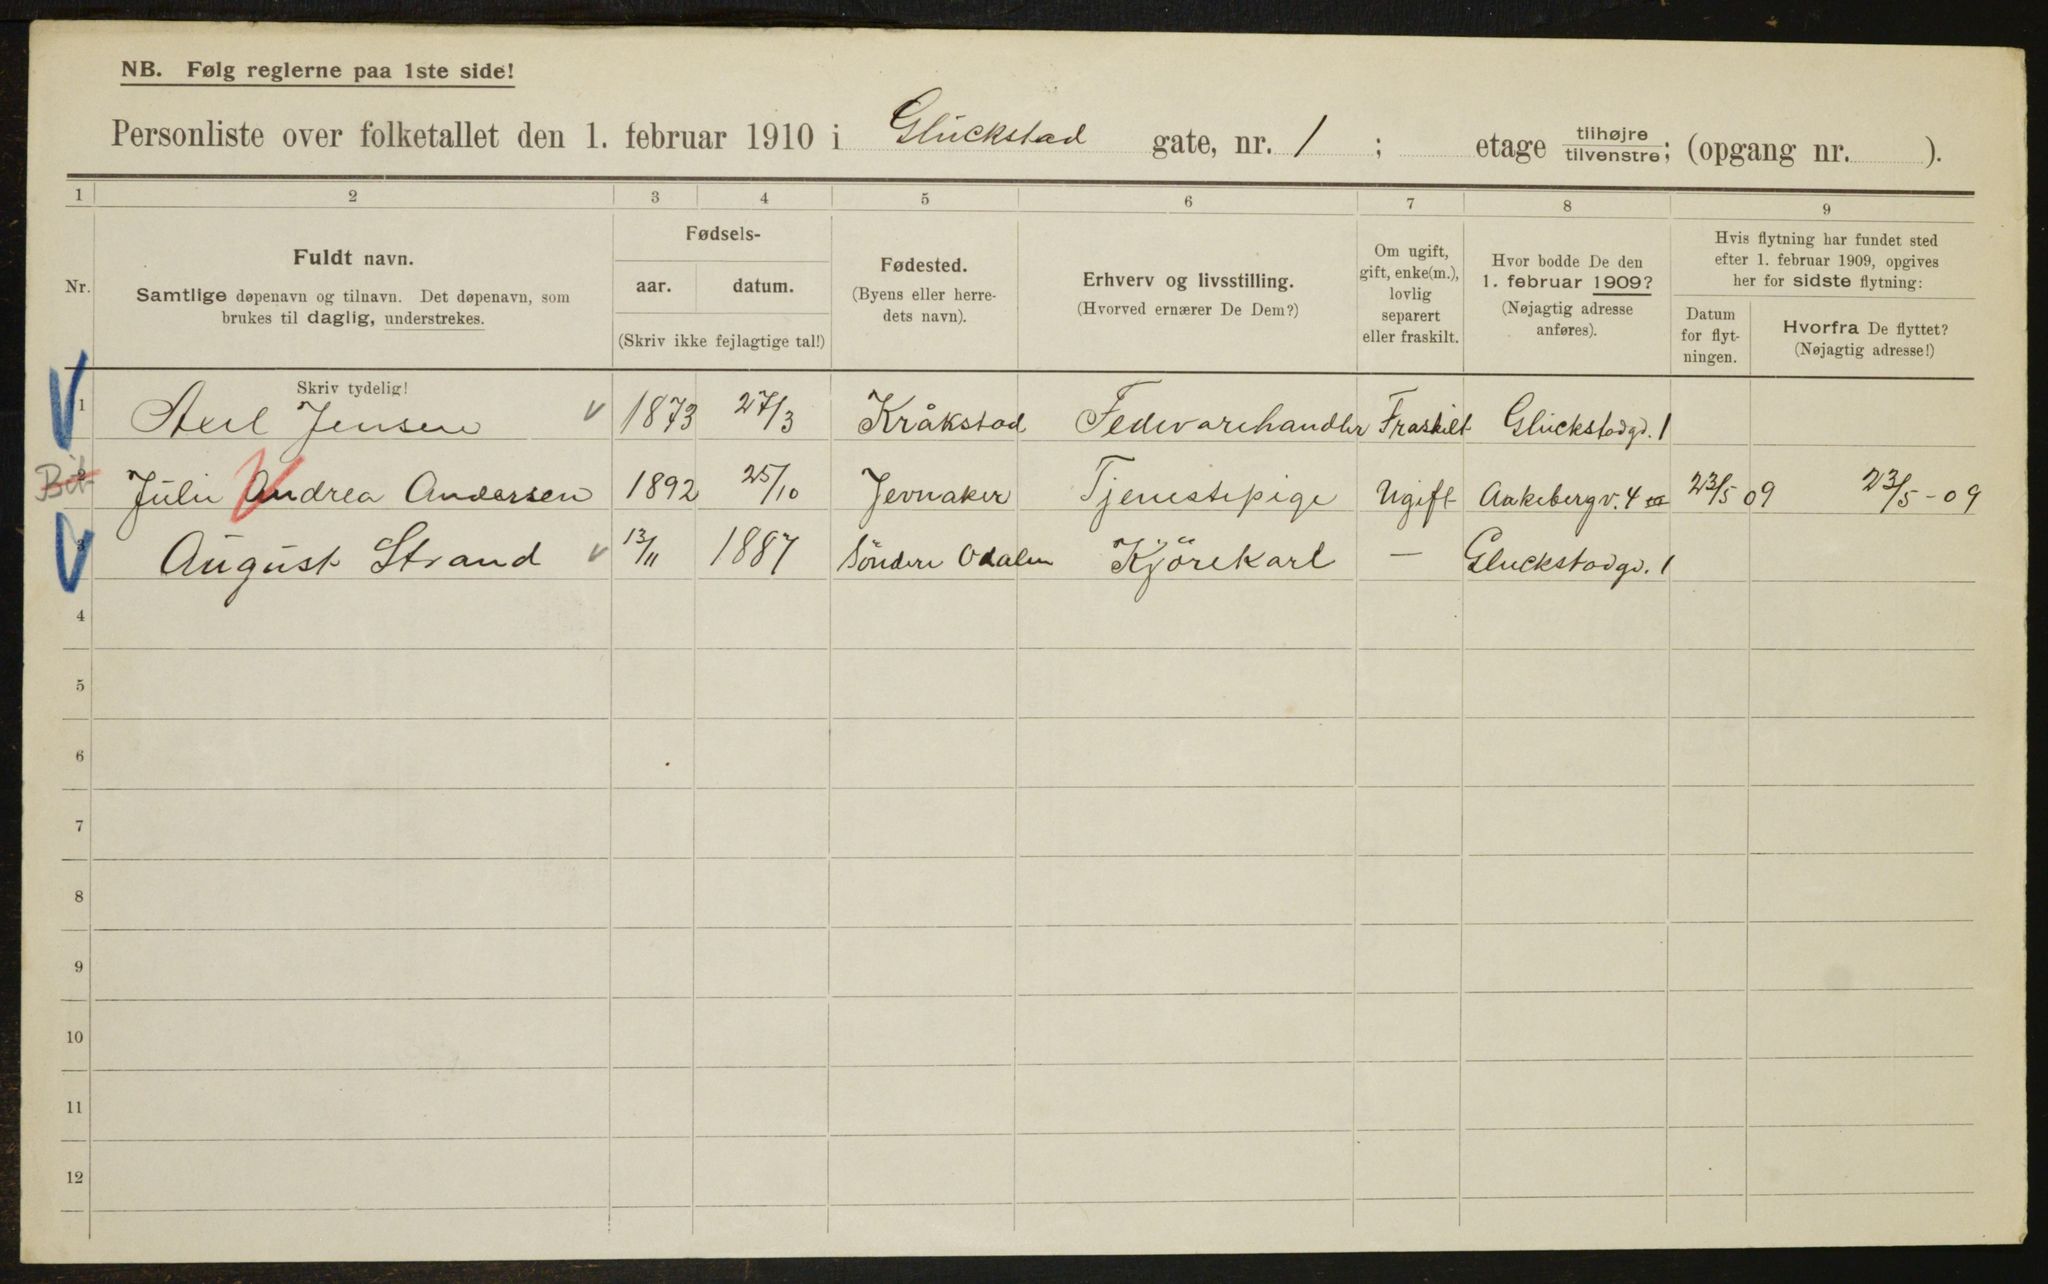 NB. Følg reglerne paa 1ste side!
Personliste over folketallet den 1. februar 1910 i Glückstad gate, nr. 1 ; etage tilhøjre/tilvenstre; (opgang nr. ).
1 2 3 4 5 6 7 8 9
Nr.
Fuldt navn.
Samtlige døpenavn og tilnavn. Det døpenavn, som
brukes til daglig, understrekes.
Fødsels-
aar. datum.
(Skriv ikke fejlagtige tal!)
Fødested.
(Byens eller herre-
dets navn).
Erhverv og livsstilling.
(Hvorved ernærer De Dem?)
Om ugift,
gift, enke(m.),
lovlig
separert
eller fraskilt.
Hvor bodde De den
1. februar 1909?
(Nøjagtig adresse
anføres).
Hvis flytning har fundet sted
efter 1. februar 1909, opgives
her for sidste flytning:
Datum
for flyt-
ningen.
Hvorfra De flyttet?
(Nøjagtig adresse!)
Skriv tydelig!
1 Axel Jensen 1873 27/3 Kråkstad Fedevarehandler Fraskilt Glückstadgd. 1
2 Julie Andrea Andersen 1892 25/10 Jevnaker Tjenestepige Ugift Aakebergv. 4 23/5 09 23/5 - 09
3 August Strand 13/11 1887 Söndere Odalen Kjörekarl — Gluckstadgd. 1
4
5
6
7
8
9
10
11
12